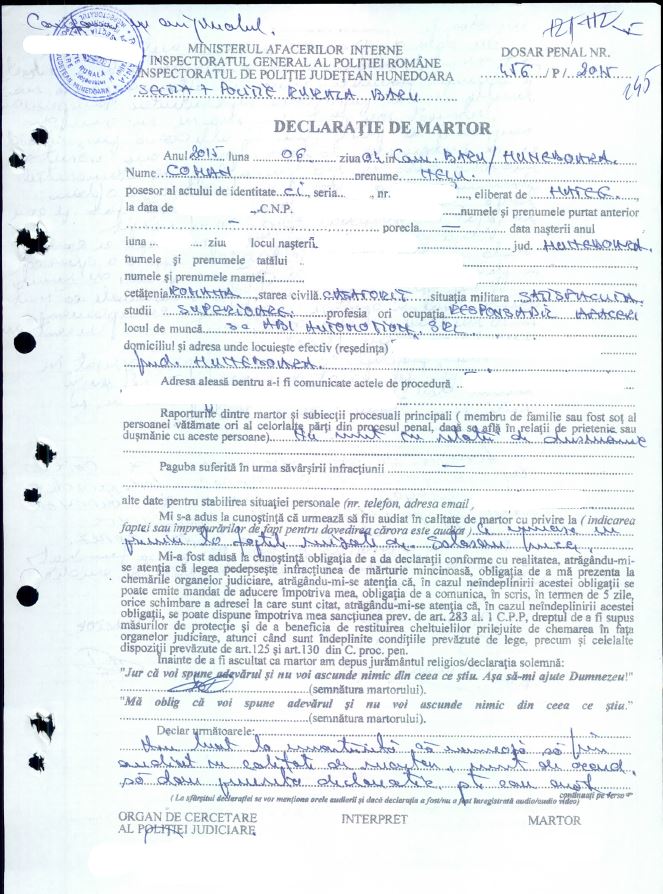 MINISTERUL AFACERILOR INTERNE
INSPECTORATUL GENERAL AL POLIŢIEI ROMÂNE
INSPECTORATUL DE POLIŢIE JUDEŢEAN HUNEDOARA
SECTIA 7 POLITIE RURALA BARU
DOSAR PENAL NR.
/P/ 2015
245
DECLARAŢIE DE MARTOR
Anul 2015 luna 06 ziua 04 în Com. BARU / HUNEDOARA
Nume COMAN prenume NELU
posesor al actului de identitate C.i., seria , nr. , eliberat de HATEG
la data de ,-C.N.P. numele şi prenumele purtat anterior
– porecla – data naşterii anul
luna ziua locul naşterii jud. HUNEDOARA
numele şi prenumele tatălui
numele şi prenumele mamei
cetăţenia ROMANA starea civilă CASATORIT situaţia militara SATISFACUTA
studii SUPERIOARE profesia ori ocupaţia RESPONSABIL AFACERI
locul de muncă SC AUTOMOTION SRL
domiciliul şi adresa unde locuieşte efectiv (reşedinţa)
jud. HUNEDOARA
Adresa aleasă pentru a-i fi comunicate actele de procedură
Raporturile dintre martor şi subiecţii procesuali principali ( membru de familie sau fost soţ al
persoanei vătămate ori al celorlalte părţi din procesul penal, dacă se află în relaţii de prietenie sau
duşmănie cu aceste persoane) Nu sunt relatii de dusmanie
Paguba suferită în urma săvârşirii infracţiunii –
alte date pentru stabilirea situaţiei personale (nr. telefon, adresa email ,
Mi s-a adus la cunoştinţă că urmează să fiu audiat în calitate de martor cu privire la ( indicarea
faptei sau împrejurărilor de fapt pentru dovedirea cărora este audiat )
Mi-a fost adusă la cunoştinţă obligaţia de a da declaraţii conforme cu realitatea, atrăgându-mi-
se atenţia că legea pedepseşte infracţiunea de mărturie mincinoasă, obligaţia de a mă prezenta la
chemările organelor judiciare, atrăgându-mi-se atenţia că, în cazul neîndeplinirii acestei obligaţii se
poate emite mandat de aducere împotriva mea, obligaţia de a comunica, în scris, în termen de 5 zile,
orice schimbare a adresei la care sunt citat, atrăgându-mi-se atenţia că, în cazul neîndeplinirii acestei
obligaţii, se poate dispune împotriva mea sancţiunea prev. de art. 283 al. 1 C.P.P, dreptul de a fi supus
măsurilor de protecţie şi de a beneficia de restituirea cheltuielilor prilejuite de chemarea în faţa
organelor judiciare, atunci când sunt îndeplinite condiţiile prevăzute de lege, precum şi celelalte
dispoziţii prevăzute de art.125 şi art.130 din C. proc. pen.
Înainte de a fi ascultat ca martor am depus jurământul religios/declaraţia solemnă:
"Jur că voi spune adevărul şi nu voi ascunde nimic din ceea ce ştiu. Aşa să-mi ajute Dumnezeu!"
(semnătura martorului).
"Mă oblig că voi spune adevărul şi nu voi ascunde nimic din ceea ce ştiu."
(semnătura martorului).
Declar următoarele:
Am luat la cunostinta că urmează să fiu
audiat in calitate de martor, sunt de acord
să dau prezenta declaratie,
continuaţi pe verso
( La sfârşitul declaraţiei se vor menţiona orele audierii şi dacă declaraţia a fost/nu a fost înregistrată audio/audio video)
ORGAN DE CERCETARE INTERPRET MARTOR
AL POLIŢIEI JUDICIARE